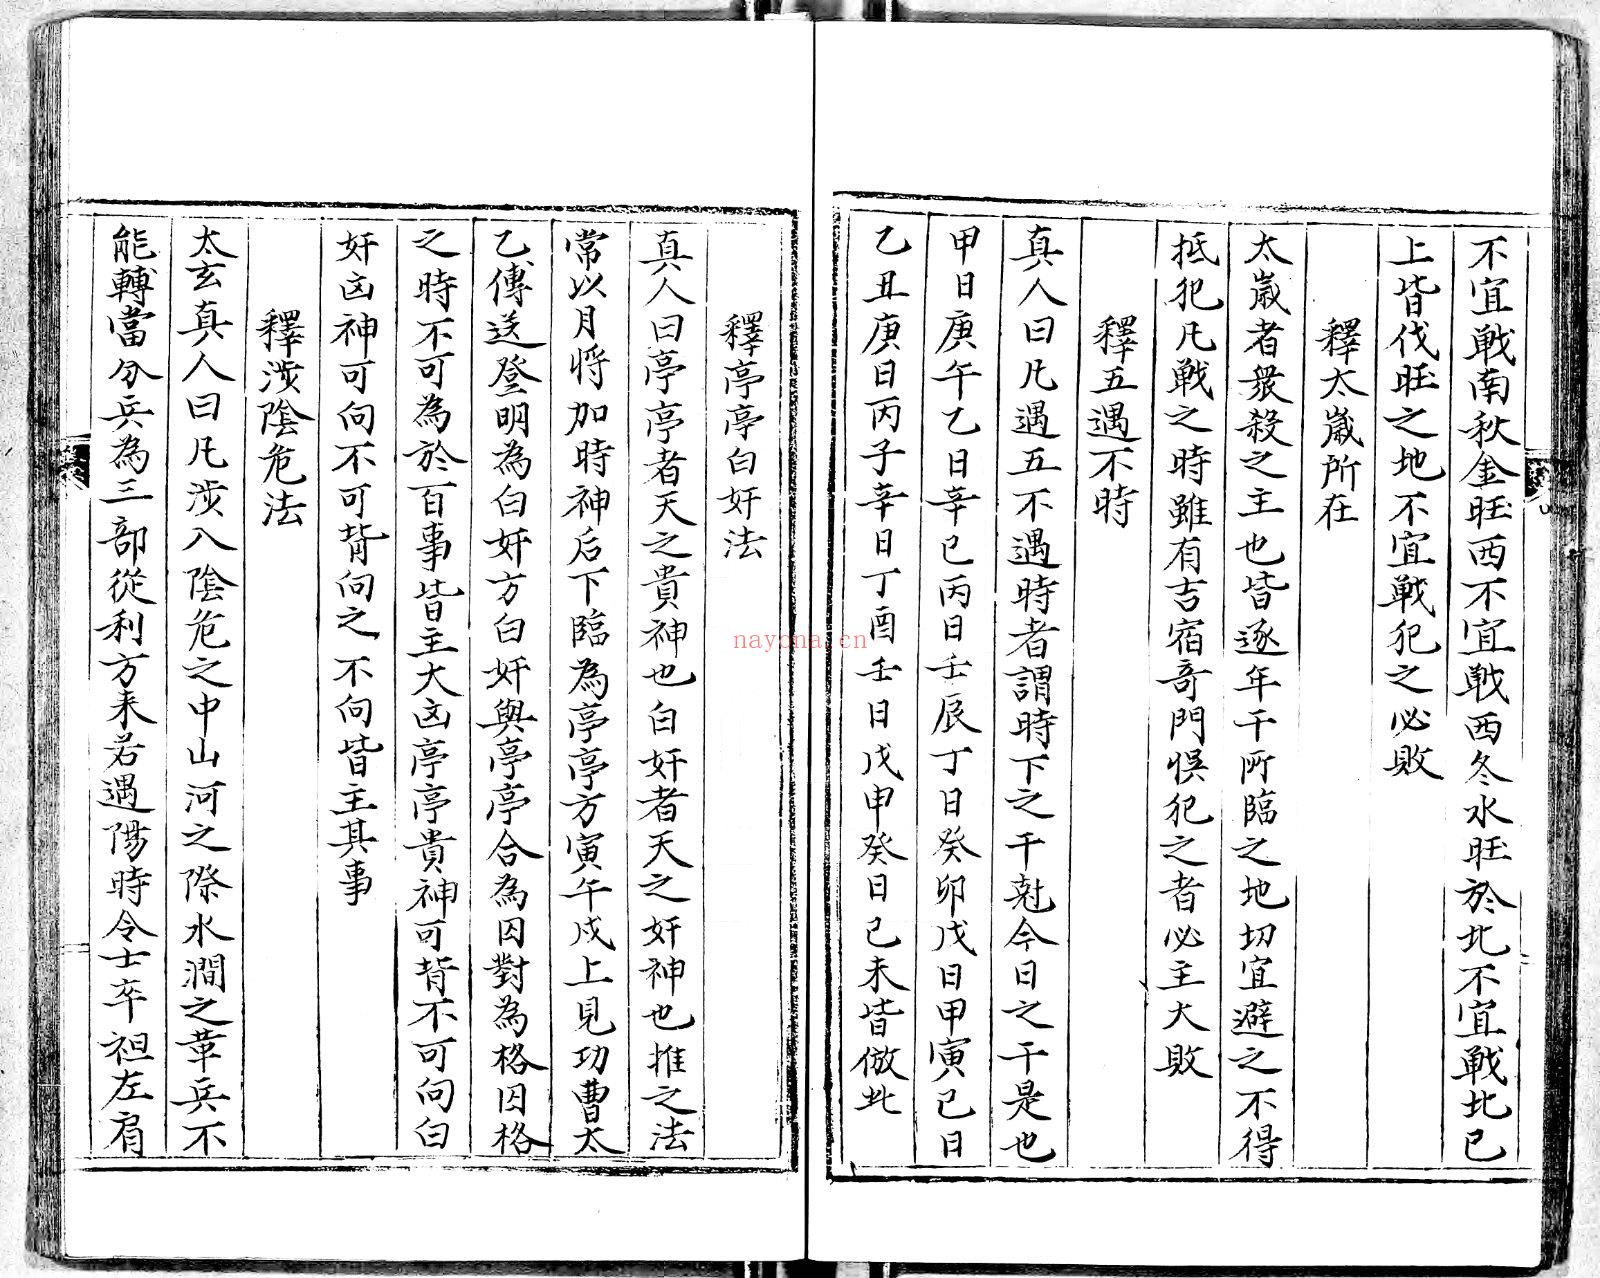 不宜戰南秋金旺西不宜戰西冬水旺於北不宜戰北已
上皆伐旺之地不宜戰犯之必敗
釋太嵗所在
太嵗者衆殺之主也皆逐年干所臨之地切宜避之不得
抵犯凡戰之時雖有吉宿竒門悮犯之者必主大敗
釋五遇不時
真人曰凡遇五不遇時者謂時下之干尅今日之干是也
甲日庚午乙日辛巳丙日壬辰丁日癸卯戊日甲寅己日
乙丑庚日丙子辛日丁酉壬日戊申癸日己未皆倣此
釋亭亭白奸法
真人曰亭亭者天之貴神也白奸者天之奸神也推之法
常以月將加時神后下臨為亭亭方寅午戌上見功曹太
乙傳送登明為白奸方白奸與亭亭合為囚對為格囚格
之時不可為於百事皆主大凶亭亭貴神可背不可向白
奸凶神可向不可背向之不向皆主其事
釋涉陰危法
太玄真人曰凡涉入陰危之中山河之際水澗之葦兵不
能轉當分兵為三部從利方来若遇陽時令士卒袒左肩
nayona.cn